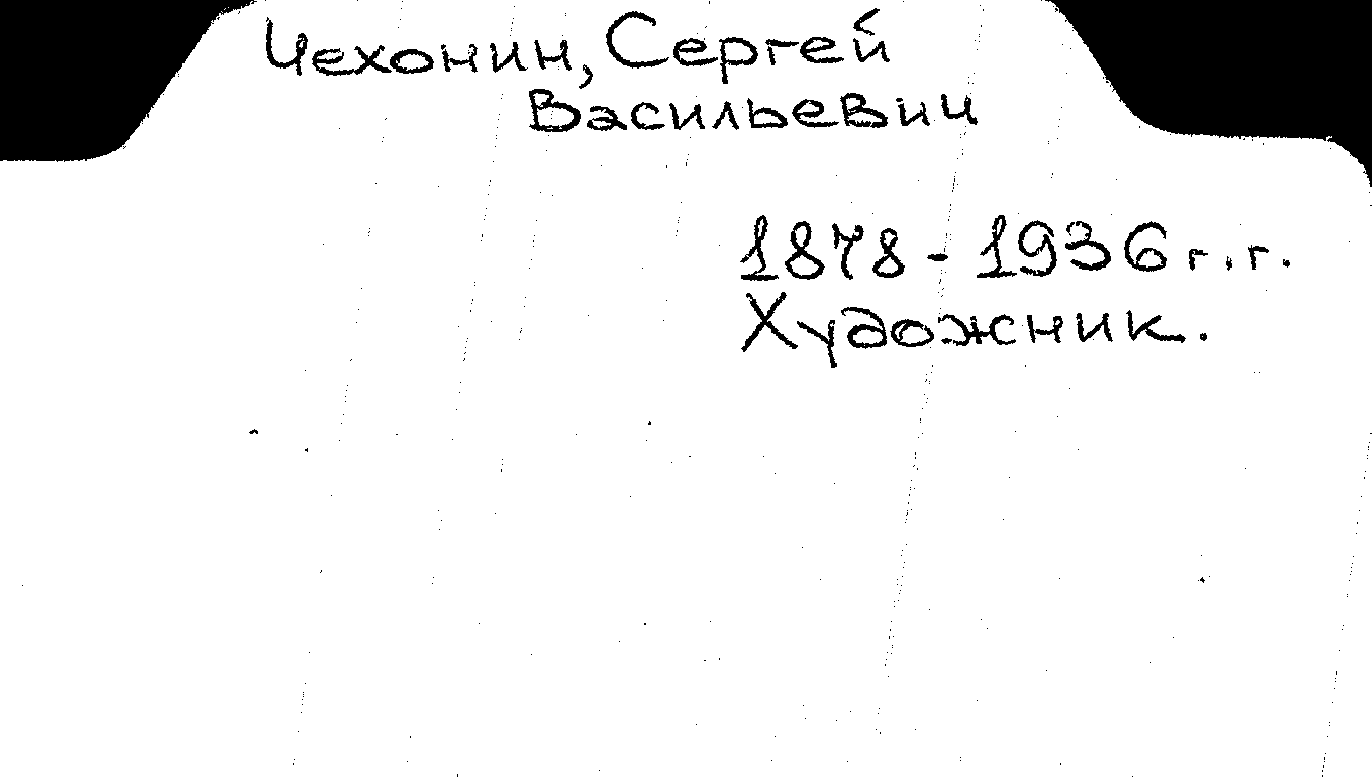 Чехонин, Сергей
Васильевич
1878 - 1936 г.г.
Художник.